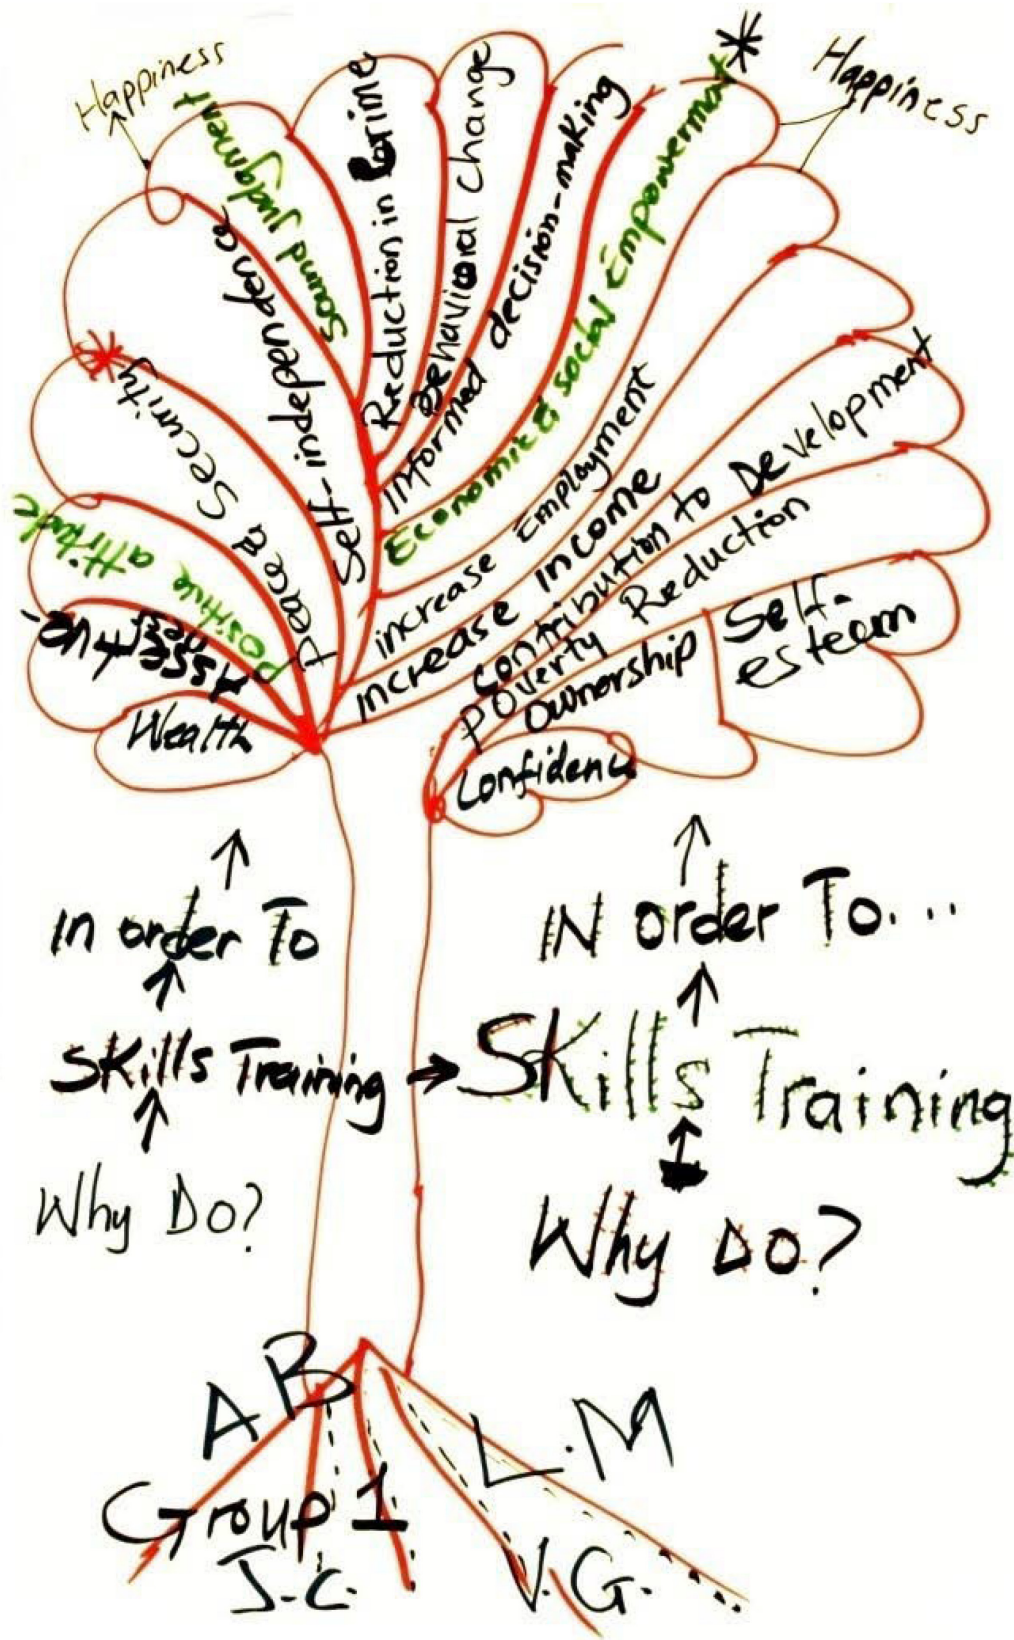 Happiness
Happiness
Sound judgment
Reduction in Crime
Behavioral Change
Informed decision-making
Economic & social Empowerment
Self-independence
Peace & Security
Positive attitude
Assertive-
ness
Wealth
increase Employment
increase income
contribution to Development
Poverty Reduction
Ownership
Self-
esteem
Confidence
In order To
IN order To...
Skills Training
Skills Training
Why Do?
Why Do?
A B
L.M
Group 1
J.C.
V.G.